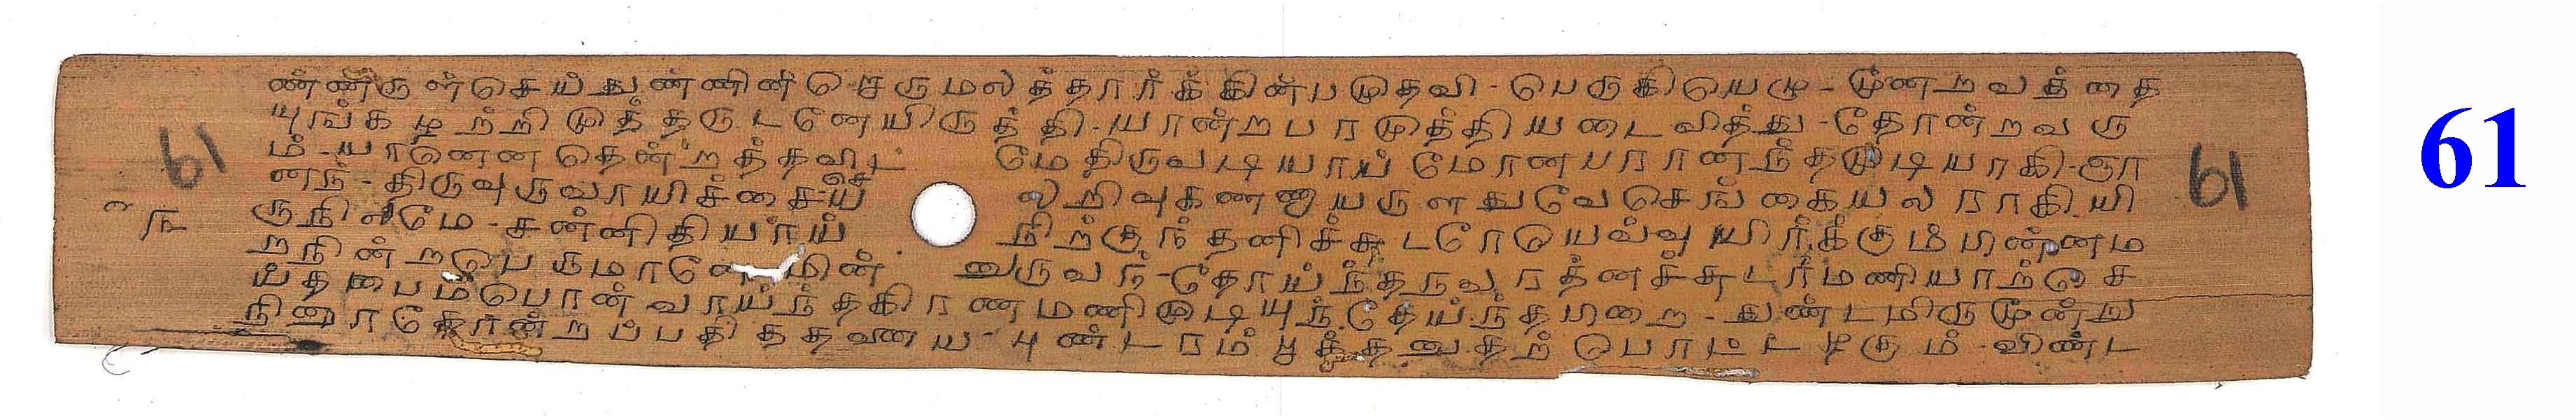 ண்ணருள்செய்துண்ணின்றொருமலத்தார்க்கின்பமுதவி-பெருகியெழு-மூனறவத்தை
யுங்கழற்றிமுத்தருடனேயிருத்தி-யான்றபரமுத்தியடைவித்து-தோன்றவரு
ம்-யானெனதென்றத்தவிட மேதிருவடியாய்மோனபரானந்தமுடியாகி-ஞா
னந்-திருவுருவாயிச்சைசெய லறிவுகண்ணுயருளதுவேசெங்கையலராகியி
ருநிலமே-சன்னிதியாய் நிற்குந்தனிச்சுடரேயெவ்வுயிர்க்கும்பின்னம
றநின்றபெருமானே-மின் னுருவந்-தோய்ந்தநவரத்னச்சுடர்மணியாற்செ
ய்தபைம்பொன்வாய்ந்தகிரணமணிமுடியுந்-தேய்ந்தபிறை-துண்டமிருமூன்று
நிரைதோன்றப்பதித்தனைய-புண்டரம்பூத்தநுதற்பொட்டழகும்-விண்ட
61
61
61